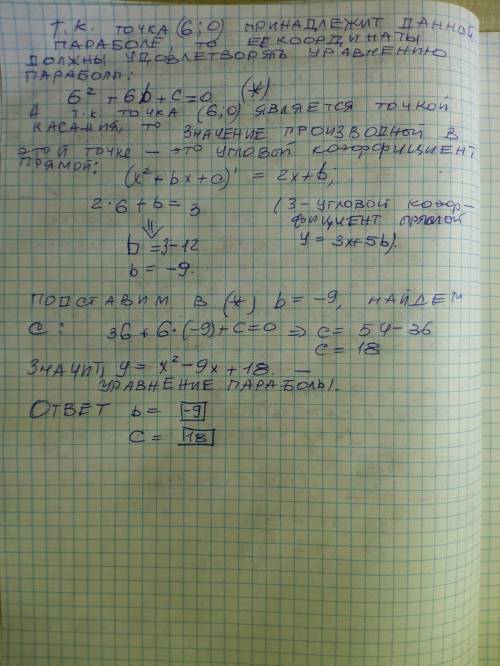 Т.К. ТОЧКА (6;0) ПРИНАДЛЕЖИТ ДАННОЙ
ПАРАБОЛЕ, ТО ЕЕ КООРДИНАТЫ
ДОЛЖНЫ УДОВЛЕТВОРЯТЬ УРАВНЕНИЮ
ПАРАБОЛЫ:
6² + 6b + c = 0 (*)
А т.к. точка (6;0) ЯВЛЯЕТСЯ ТОЧКОЙ
КАСАНИЯ, ТО ЗНАЧЕНИЕ ПРОИЗВОДНОЙ В
ЭТОЙ ТОЧКЕ – ЭТО УГЛОВОЙ КОЭФФИЦИЕНТ
ПРЯМОЙ:
(x² + bx + c)' = 2x + b;
2·6 + b = 3 (3 – УГЛОВОЙ КОЭФ-
ФИЦИЕНТ ПРЯМОЙ
⇓ y = 3x + 5b).
b = 3 – 12
b = –9.
ПОДСТАВИМ В (*) b = –9, НАЙДЕМ
C: 36 + 6·(–9) + C = 0 ⇒ C = 54 – 36
C = 18
ЗНАЧИТ, y = x² – 9x + 18. —
УРАВНЕНИЕ ПАРАБОЛЫ.
ОТВЕТ b = -9
C = 18